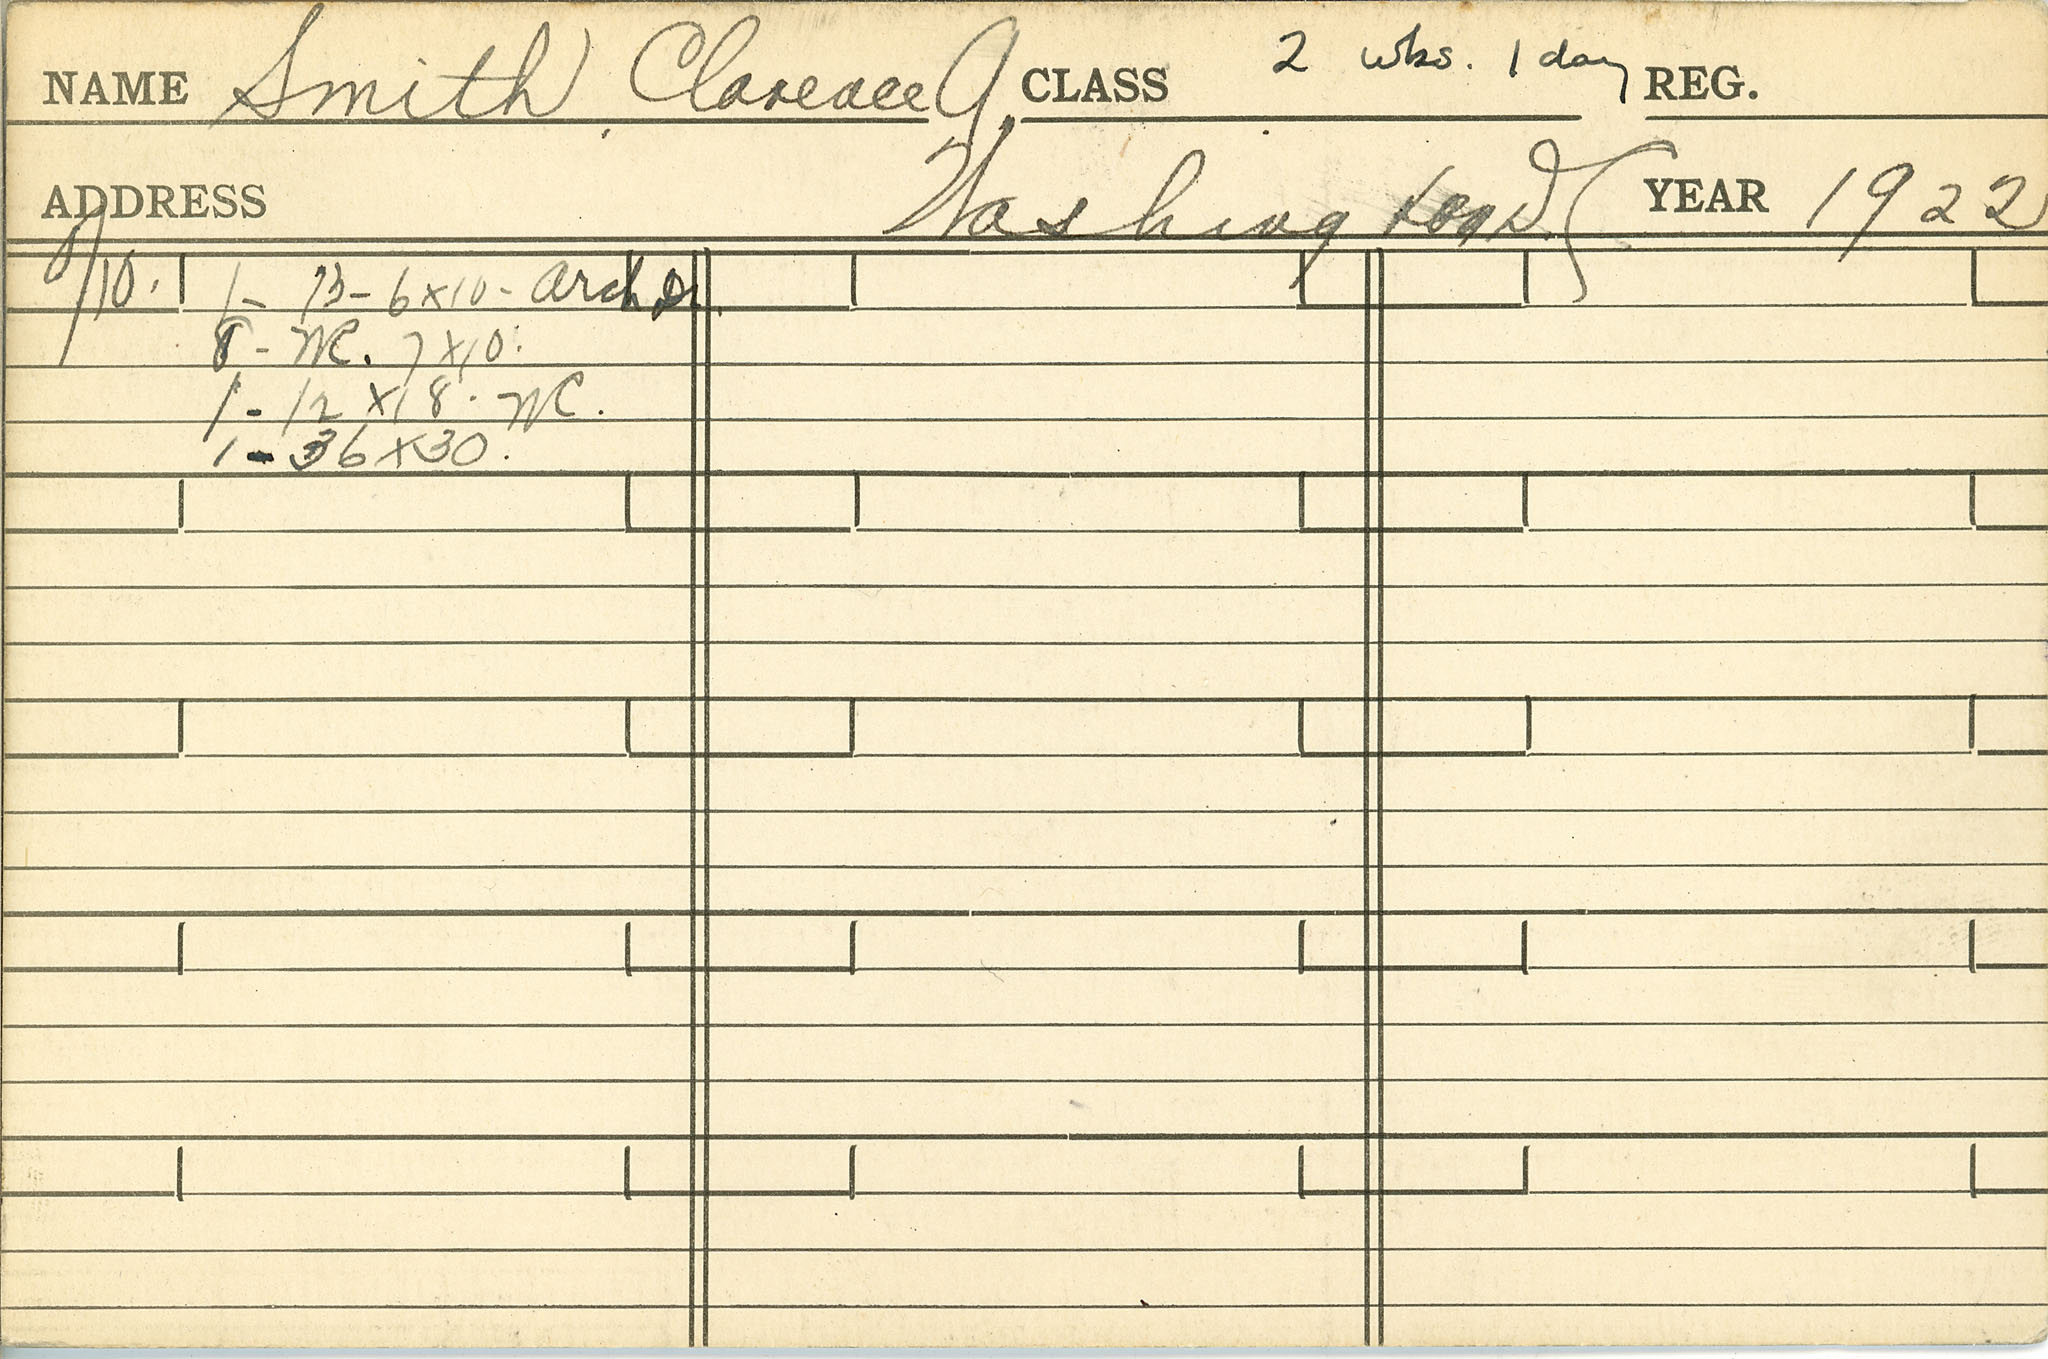 NAME Smith, Clarence A. CLASS 2 wks. 1 day REG.
ADDRESS Washington D.C. YEAR 1922
8/10. 1- B- 6x10- arch Dr.
8- WC. 7x10.
1- 12x18. WC.
1- 36x30.